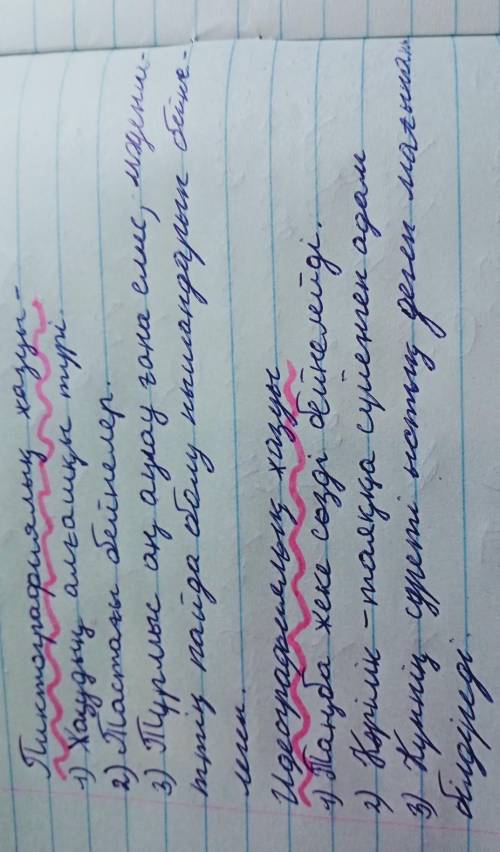 Пиктографиялық жазу -
1) Жаудың алғашқы түрі.
2) Тастағы бейнелер.
3) Тұрмыс аң аулау ғана емес,
тің пайда болу нышандарын бейне-
леген.
Идеографиялық жазу
1) Таңба жеке сөзді бейнелейді.
2) Кәрілік - таяққа сүйенген адам
3) Күннің суреті ыстық деген мағынаны
білдіреді.